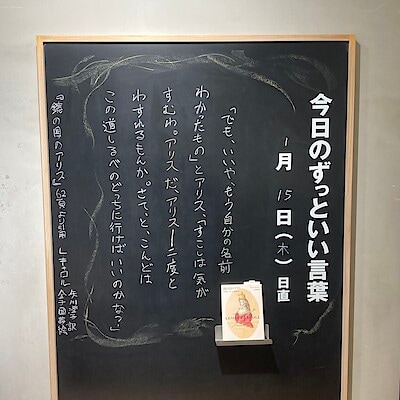 今日のずっといい言葉
1月15日(木)日直
「でも、いいや、もう自分の名前
わかったもの」とアリス、「すこしは気が
すむわ。アリスだ、アリス！二度と
わすれるもんか。さて、と、こんどは
この道しるべのどっちに行けばいいのかなっ」
『鏡の国のアリス』62頁より引用 L.キャロル 矢川澄子 訳
金子國義 絵